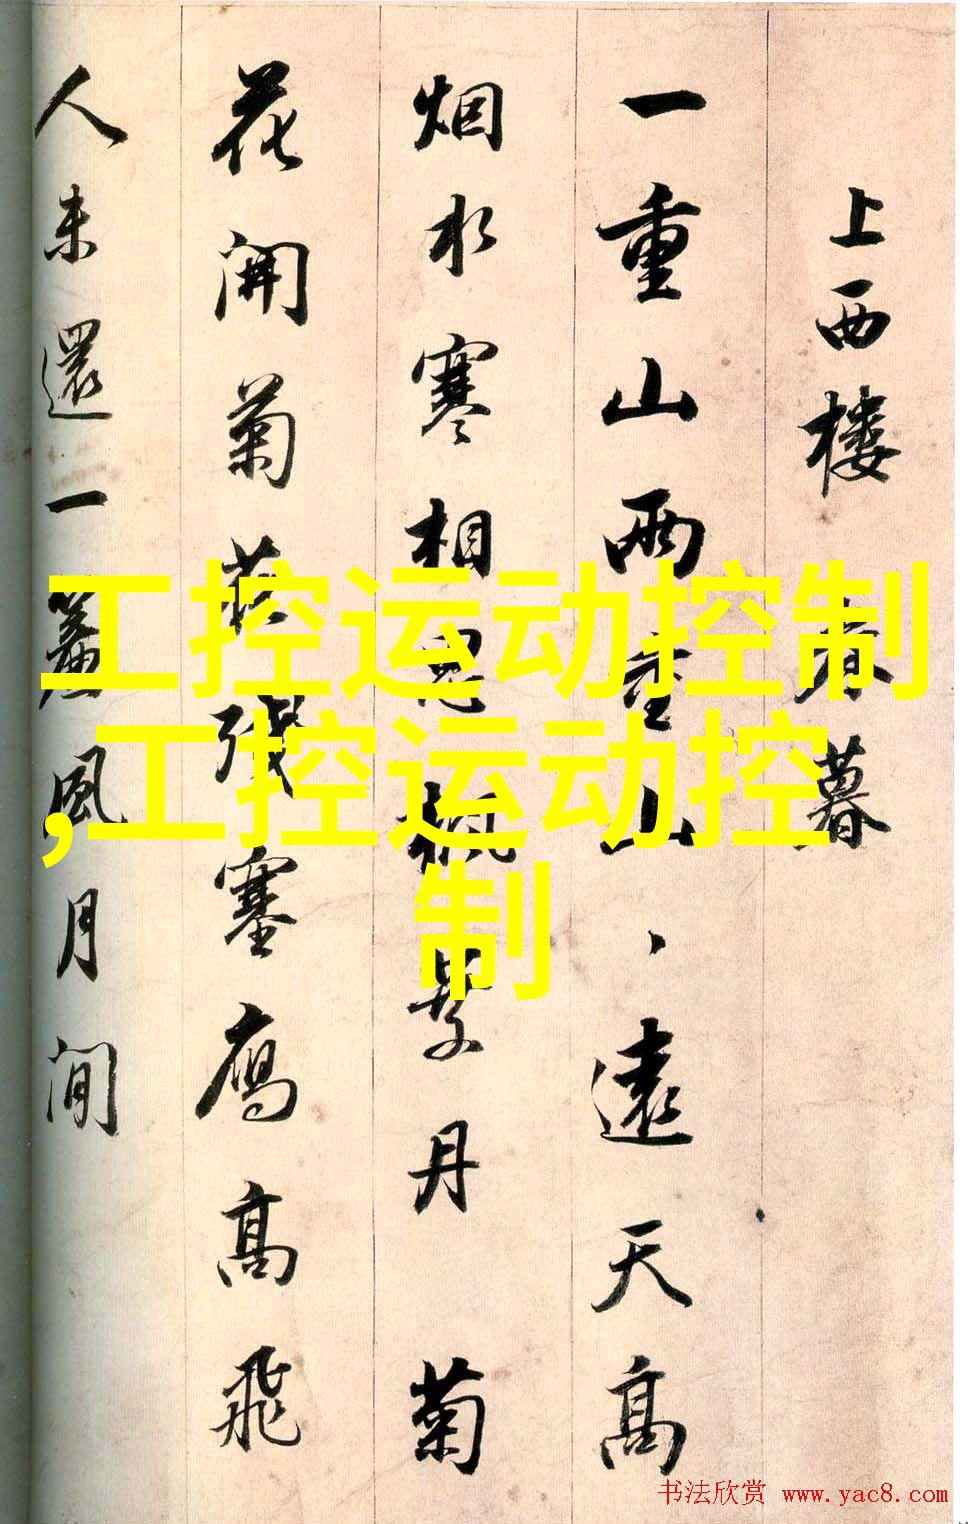 上西楼 春暮
一重山兩重山、遠天高
烟水寒相思楓葉丹 菊
花開菊花殘塞鴈高飛
人未還一簾風月閒
工控运动控制
,工控运动控
制
书法欣赏 www.yac8.com